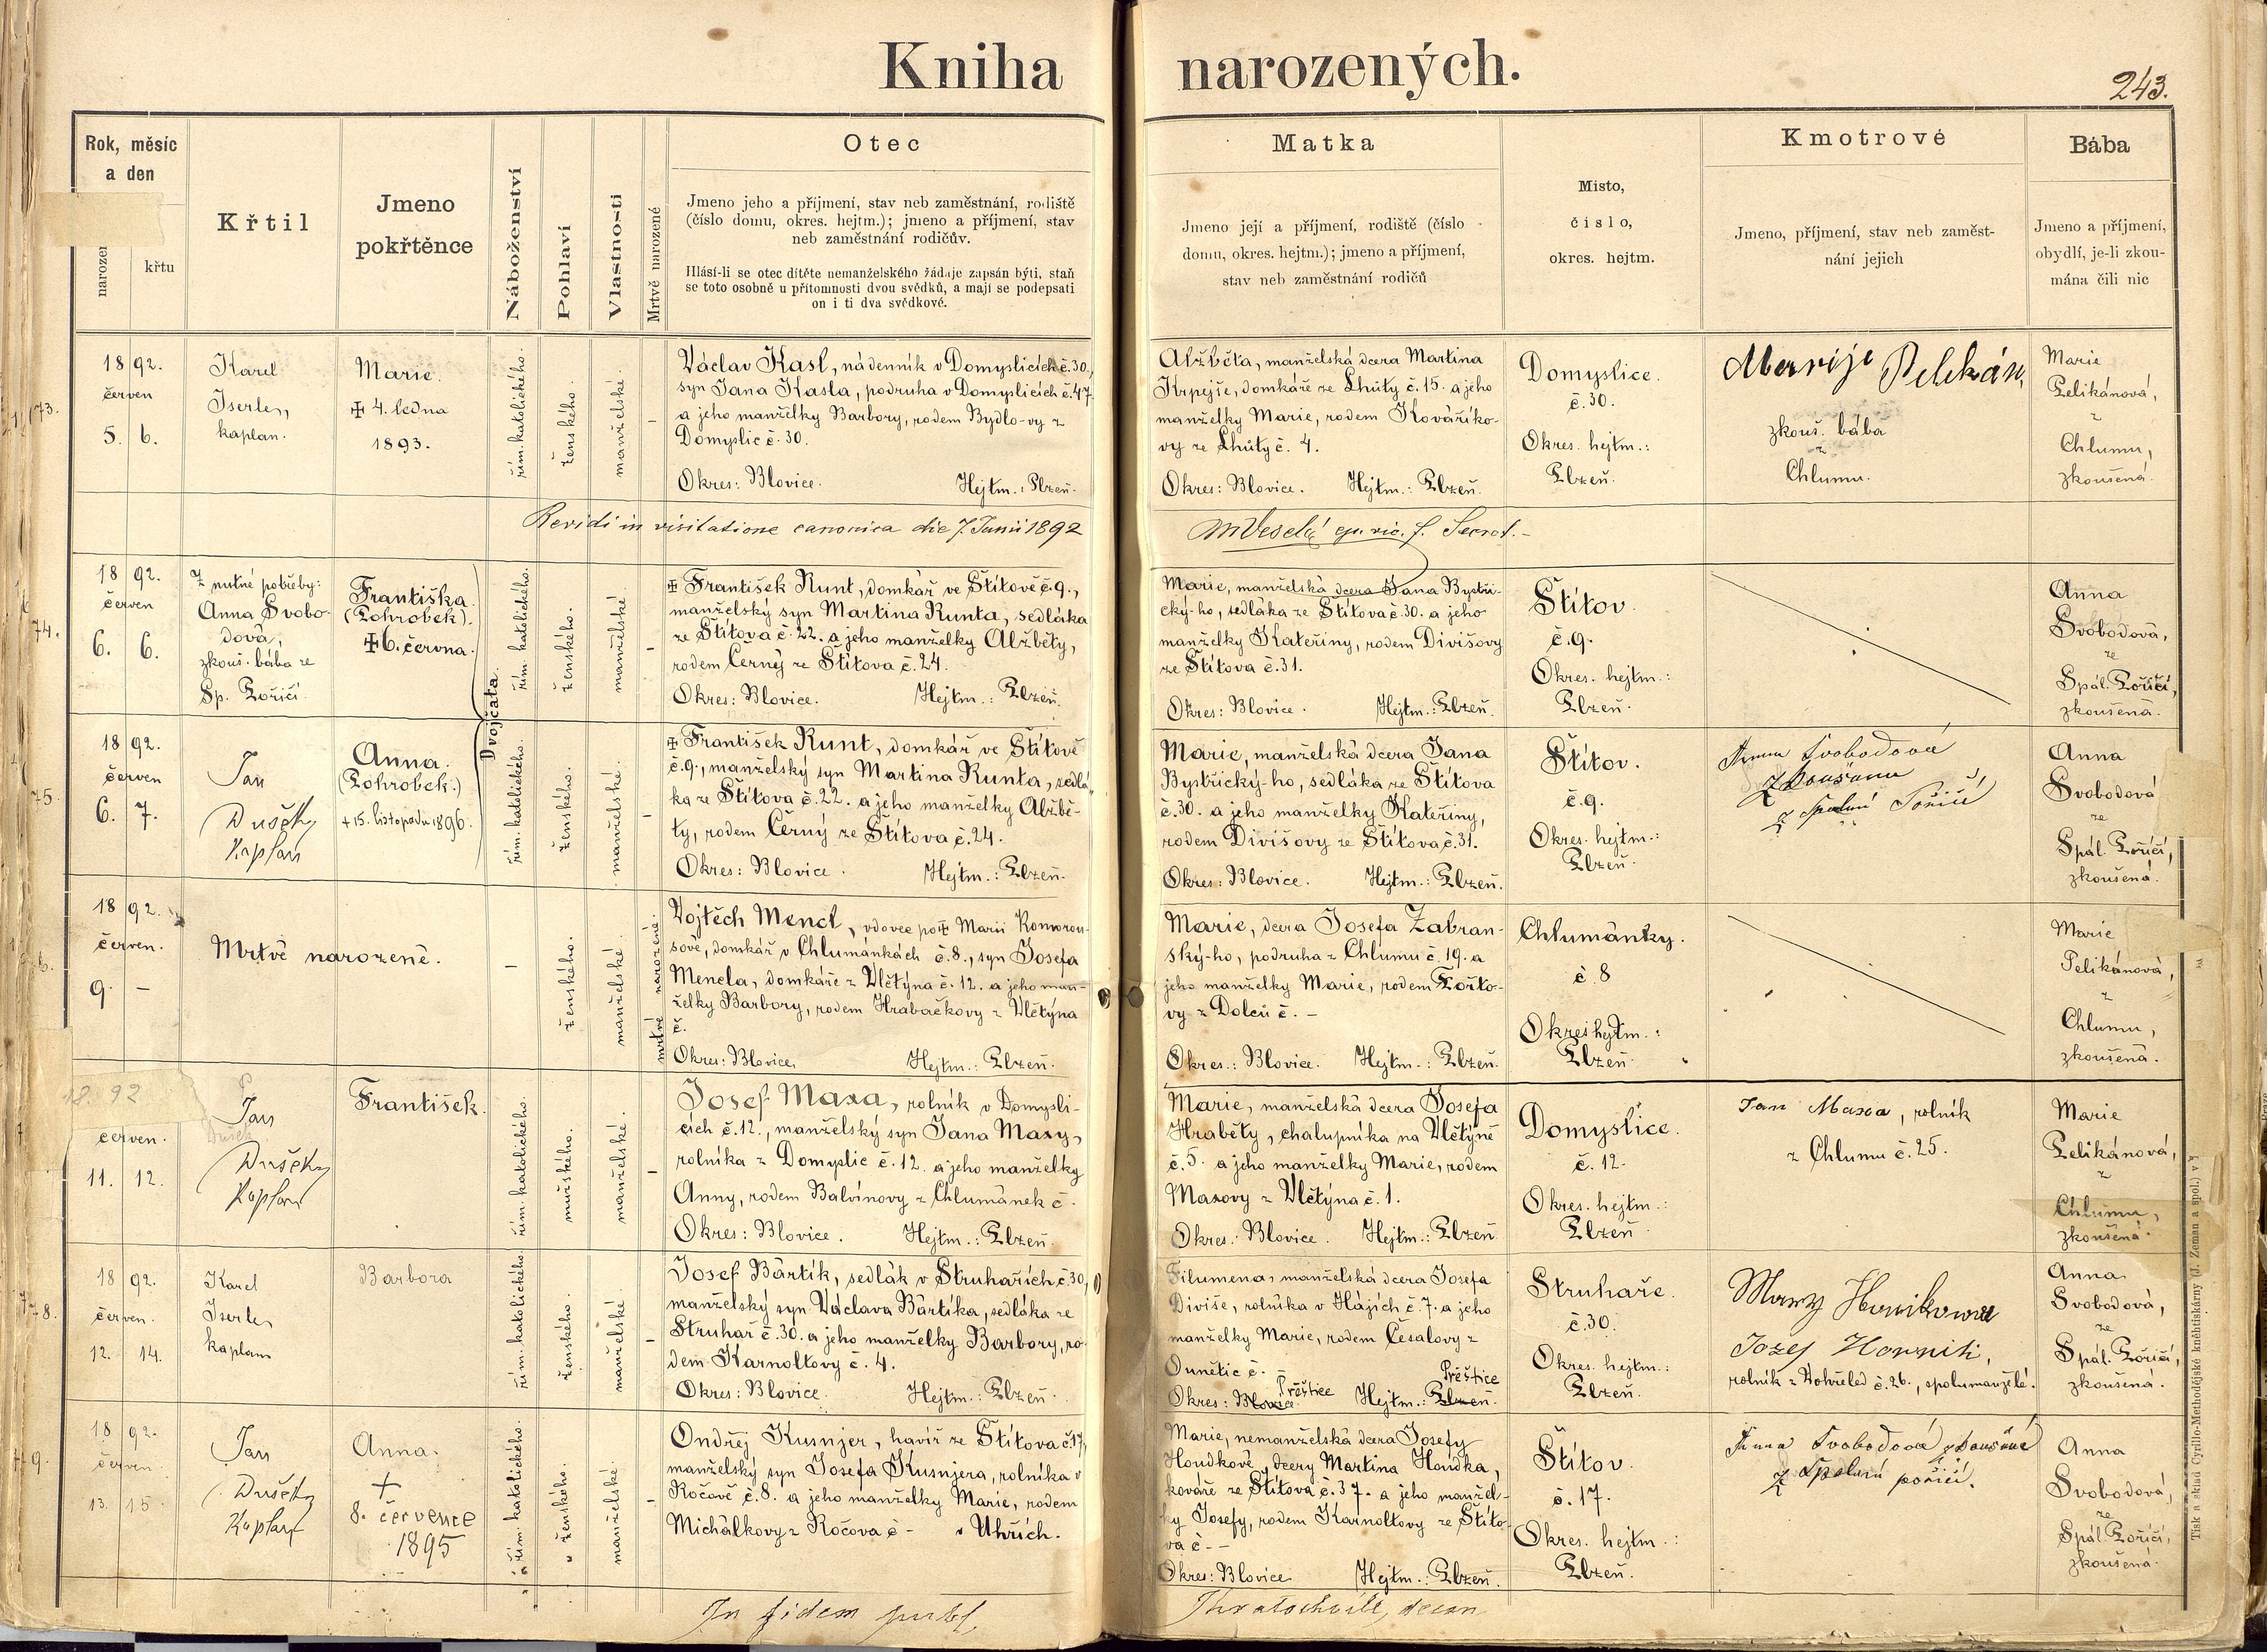 Kniha narozených.
243.
Rok, měsíc
a den
narozen
křtu
Křtil
Jmeno
pokřtěnce
Náboženství
Pohlaví
Vlastnosti
Mrtvě narozené
Otec
Jmeno jeho a příjmení, stav neb zaměstnání, rodiště
(číslo domu, okres. hejtm.); jmeno a příjmení, stav
neb zaměstnání rodičův.
Hlásí-li se otec dítěte nemanželského žádaje zapsán býti, staň
se toto osobně u přítomnosti dvou svědků, a mají se podepsati
on i ti dva svědkové.
Matka
Jmeno její a příjmení, rodiště (číslo
domu, okres. hejtm.); jmeno a příjmení,
stav neb zaměstnání rodičů
Misto,
číslo,
okres. hejtm.
Kmotrové
Jmeno, příjmení, stav neb zaměst-
nání jejich
Bába
Jmeno a příjmení,
obydlí, je-li zkou-
mána čili nic
73.
1892.
červen
5. 6.
Karel
Iserle,
kaplan.
Marie.
✠ 4. ledna
1893.
řím. katolického.
ženského.
manželské.
–
Václav Kasl, nádenník v Domyslicích č. 30.,
syn Jana Kasla, podruha v Domyslicích č. 47.
a jeho manželky Barbory, rodem Bydlo-vy z
Domyslic č. 30.
Okres: Blovice. Hejtm.: Plzeň.
Alžběta, manželská dcera Martina
Krpejše, domkáře ze Lhůty č. 15. a jeho
manželky Marie, rodem Kováříko-
vy ze Lhůty č. 4.
Okres: Blovice. Hejtm.: Plzeň.
Domyslice.
č. 30.
Okres. hejtm.:
Plzeň.
Marije Pelikán,
zkouš. bába
z
Chlumu.
Marie
Pelikánová,
z
Chlumu,
zkoušená.
Revidi in visitatione canonica die 7. Junii 1892
MVeselý ep. vic. f. Secret.
74.
1892.
červen
6. 6.
Z nutné potřeby:
Anna Svobo-
dová,
zkouš. bába ze
Sp. Poříčí.
Františka.
(Pohrobek).
✠ 6. června.
Dvojčata.
řím. katolického.
ženského.
manželské
–
✠ František Kunt, domkář ve Štítově č. 9.,
manželský syn Martina Kunta, sedláka
ze Štítova č. 22. a jeho manželky Alžběty,
rodem Černý ze Štítova č. 24.
Okres: Blovice. Hejtm.: Plzeň.
Marie, manželská dcera Jana Bystři-
cký-ho, sedláka ze Štítova č. 30. a jeho
manželky Kateřiny, rodem Divišovy
ze Štítova č. 31.
Okres: Blovice. Hejtm.: Plzeň.
Štítov.
č. 9.
Okres. hejtm.:
Plzeň.
Anna
Svobodová,
ze
Spál. Poříčí,
zkoušená.
75.
1892.
červen
6. 7.
Jan
Dušek,
Kaplan
Anna.
(Pohrobek.)
+ 15. listopadu 1896.
řím. katolického.
ženského.
manželské.
–
✠ František Kunt, domkář ve Štítově
č. 9., manželský syn Martina Kunta, sedlá-
ka ze Štítova č. 22. a jeho manželky Alžbě-
ty, rodem Černý ze Štítova č. 24.
Okres: Blovice. Hejtm.: Plzeň.
Marie, manželská dcera Jana
Bystřický-ho, sedláka ze Štítova
č. 30. a jeho manželky Kateřiny,
rodem Divišovy ze Štítova č. 31.
Okres: Blovice. Hejtm.: Plzeň.
Štítov.
č. 9.
Okres. hejtm.:
Plzeň.
Anna Svobodová
Zkoušena
z Poříčí
Anna
Svobodová
ze
Spál. Poříčí,
zkoušená.
1892.
červen.
9. –
Mrtvě narozené.
–
ženského.
manželské.
mrtvě narozené.
Vojtěch Mencl, vdovec po ✠ Marii Komorou-
sové, domkář v Chlumánkách č. 8., syn Josefa
Mencla, domkáře z Vlčtýna č. 12. a jeho man-
želky Barbory, rodem Hrabačkovy z Vlčtýna
č.
Okres: Blovice. Hejtm.: Plzeň.
Marie, dcera Josefa Zabran-
ský-ho, podruha z Chlumu č. 19. a
jeho manželky Marie, rodem Fořto-
vy z Dolců č. –
Okres.: Blovice. Hejtm.: Plzeň.
Chlumánky.
č. 8
Okres hejtm.:
Plzeň.
Marie
Pelikánová,
z
Chlumu,
zkoušená.
18. 92
červen.
11. 12.
P
Jan
Dušek
Dušek,
Kaplan
František.
řím. katolického.
mužského.
manželské.
–
Josef Maxa, rolník v Domysli-
cích č. 12., manželský syn Jana Maxy,
rolníka z Domyslic č. 12. a jeho manželky
Anny, rodem Balvínovy z Chlumánek č.
Okres: Blovice. Hejtm.: Plzeň.
Marie, manželská dcera Josefa
Hraběty, chalupníka na Vlčtýně
č. 5. a jeho manželky Marie, rodem
Maxovy z Vlčtýna č. 1.
Okres: Blovice. Hejtm.: Plzeň.
Domyslice.
č. 12.
Okres. hejtm.:
Plzeň
Jan Maxa, rolník
z Chlumu č. 25.
Marie
Pelikánová,
z
Chlumu,
zkoušená.
78.
1892.
červen.
12. 14.
Karel
Iserle,
kaplan
Barbora
řím. katolického.
ženského.
manželské.
–
Josef Bártík, sedlák v Struhařích č. 30,
manželský syn Václava Bártíka, sedláka ze
Struhař č. 30. a jeho manželky Barbory, ro-
dem Karnoltovy č. 4.
Okres: Blovice. Hejtm.: Plzeň.
Filumena, manželská dcera Josefa
Diviše, rolníka v Hájích č. 7. a jeho
manželky Marie, rodem Česalovy z
Ounětic č. –
Přeštice Přeštice
Okres: Blovice. Hejtm.: Plzeň.
Struhaře.
č. 30.
Okres. hejtm.:
Plzeň.
Jozef Hornik,
rolník z Vohřeled č. 26., spolumanželé.
Anna
Svobodová,
ze
Spál. Poříčí,
zkoušená.
1892.
červen
13. 15.
Jan
Dušek,
Kaplan
Anna.
+
8. července
1895
řím. katolického.
ženského.
manželské.
–
Ondřej Kusnjer, havíř ze Štítova č. 17,
manželský syn Josefa Kusnjera, rolníka v
Kočově č. 8. a jeho manželky Marie, rodem
Michálkovy z Kočova č – v Uhřích.
Marie, nemanželská dcera Josefy
Houdkové, dcery Martina Houdka,
kováře ze Štítova č. 37. a jeho manžel-
ky Josefy, rodem Karnoltovy ze Štíto-
va č. –
Okres: Blovice. Hejtm.: Plzeň.
Štítov.
č. 17.
Okres. hejtm.:
Plzeň.
Anna Svobodová zkoušená
z poříčí.
Anna
Svobodová,
ze
Spál. Poříčí,
zkoušená.
In fidem publ.
decan
Tisk a sklad Cyrillo-Methodějské knihtiskárny (J. Zeman a spol.) v